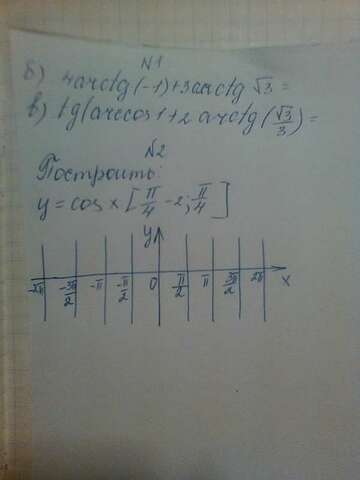 N1
б) 4arctg(-1)+3arctg √3 =
в) tg(arccos1+2 arctg(√3/3) =
N2
Построить:
y=cos x [π/4 -2; π/4]
y
-2π -3π/2 -π -π/2 0 π/2 π 3π/2 2π x